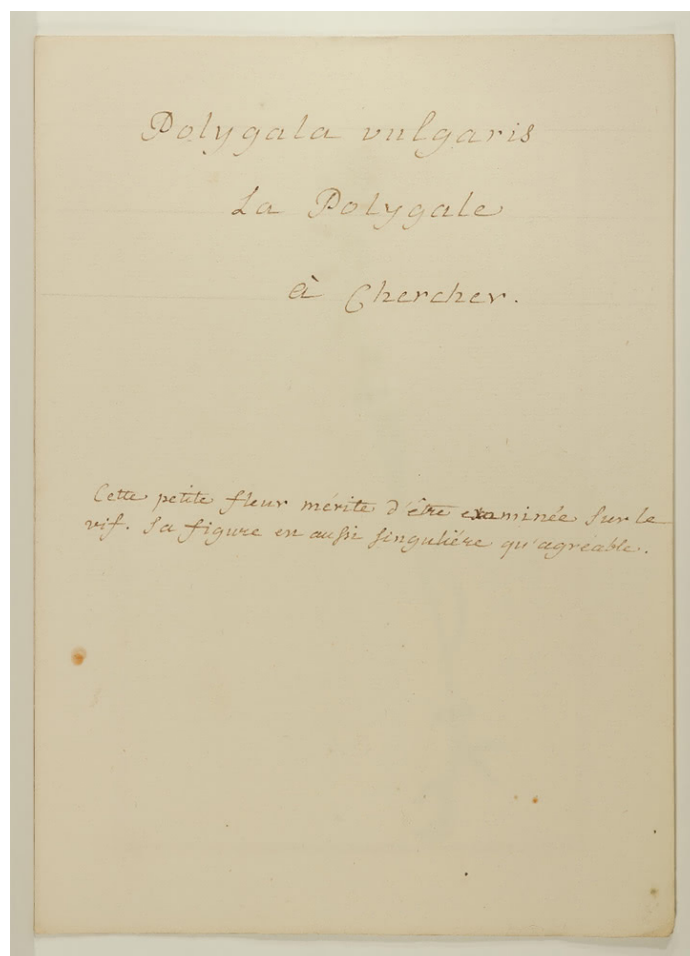 Polygala vulgaris
La Polygale
à Chercher.
Cette petite fleur mérite d'être examinée sur le
vif. Sa figure en aussi singuliére qu'agréable.